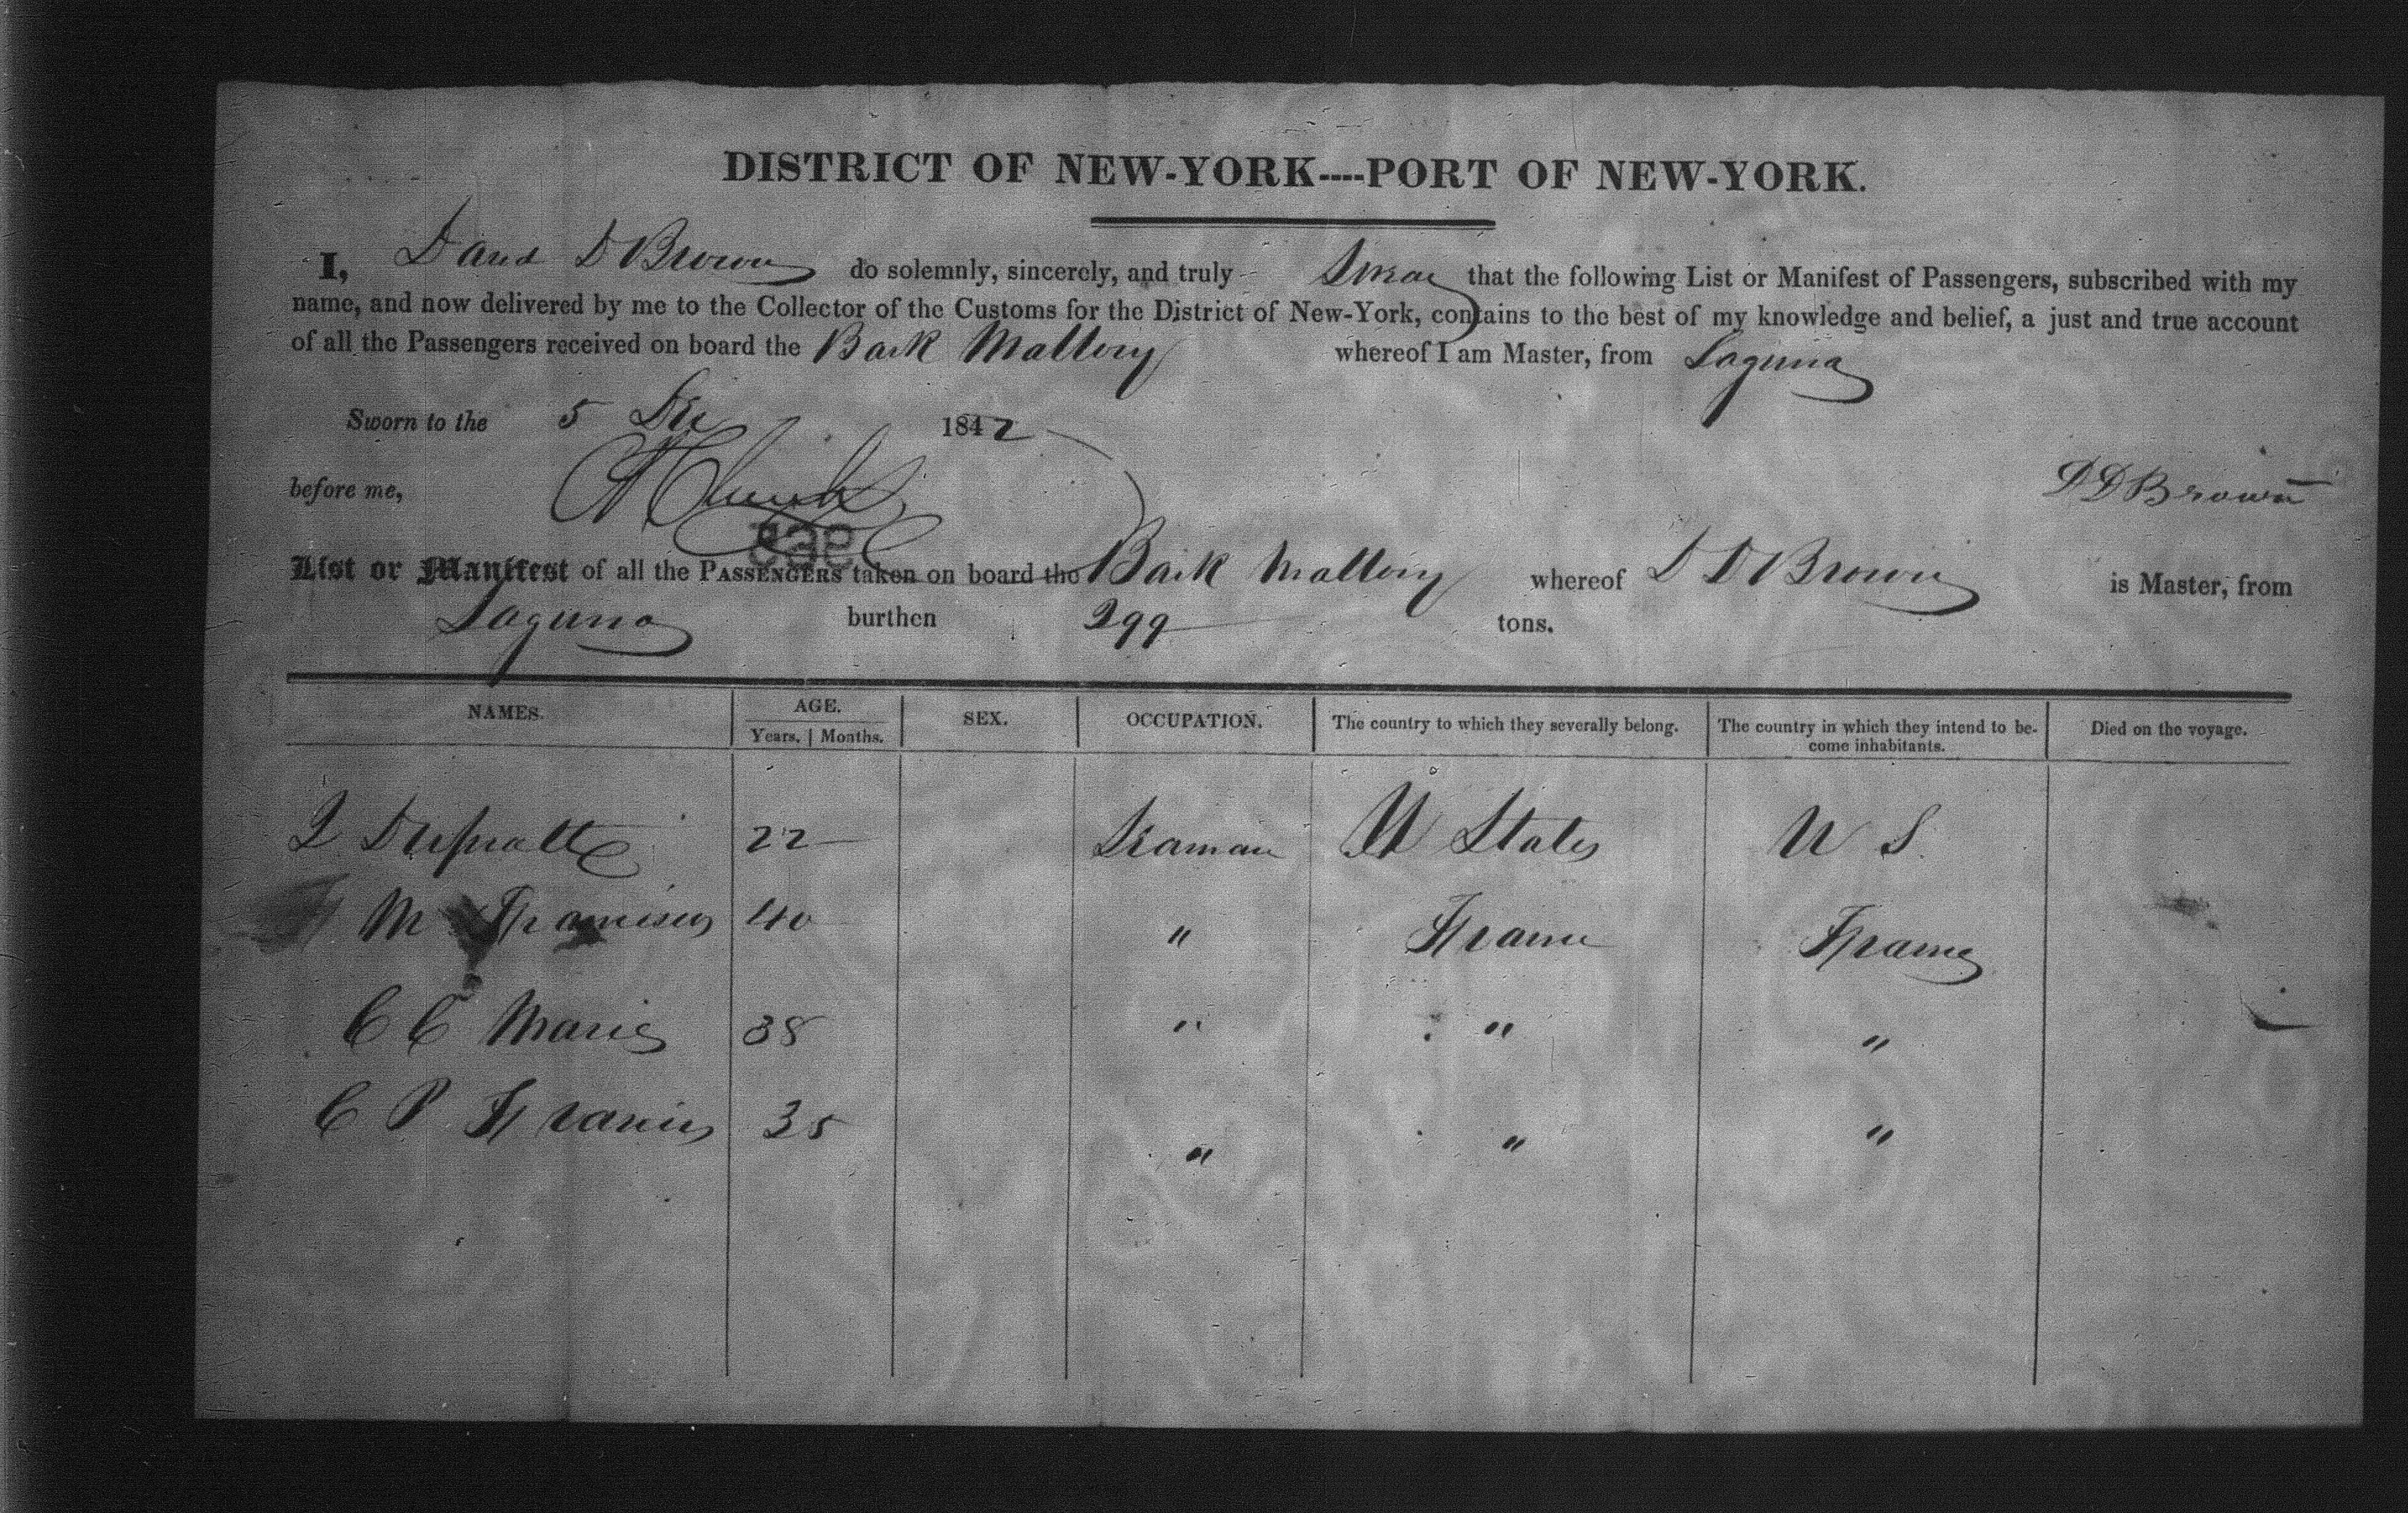 DISTRICT OF NEW-YORK----PORT OF NEW-YORK.
I, David D Brown do solemnly, sincerely, and truly Swear that the following List or Manifest of Passengers, subscribed with my
name, and now delivered by me to the Collector of the Customs for the District of New-York, contains to the best of my knowledge and belief, a just and true account
of all the Passengers received on board the Bark Mallory whereof I am Master, from Laguna
Sworn to the 5 Dec 1842
before me,
D D Brown
List or Manifest of all the PASSENGERS taken on board the Bark Mallory whereof D D Brown is Master, from
Laguna burthen 299 tons.
NAMES. AGE. SEX. OCCUPATION. The country to which they severally belong. The country in which they intend to be- Died on the voyage.
Years. Months. come inhabitants.
Dupratt 22 Seaman U States U S.
M Francisco 40 " France France
C C Marie 38 " " "
C P Francis 35 " " "